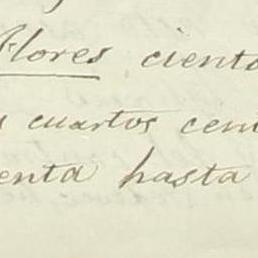 Flores ciento
s cuartos cent
enta hasta